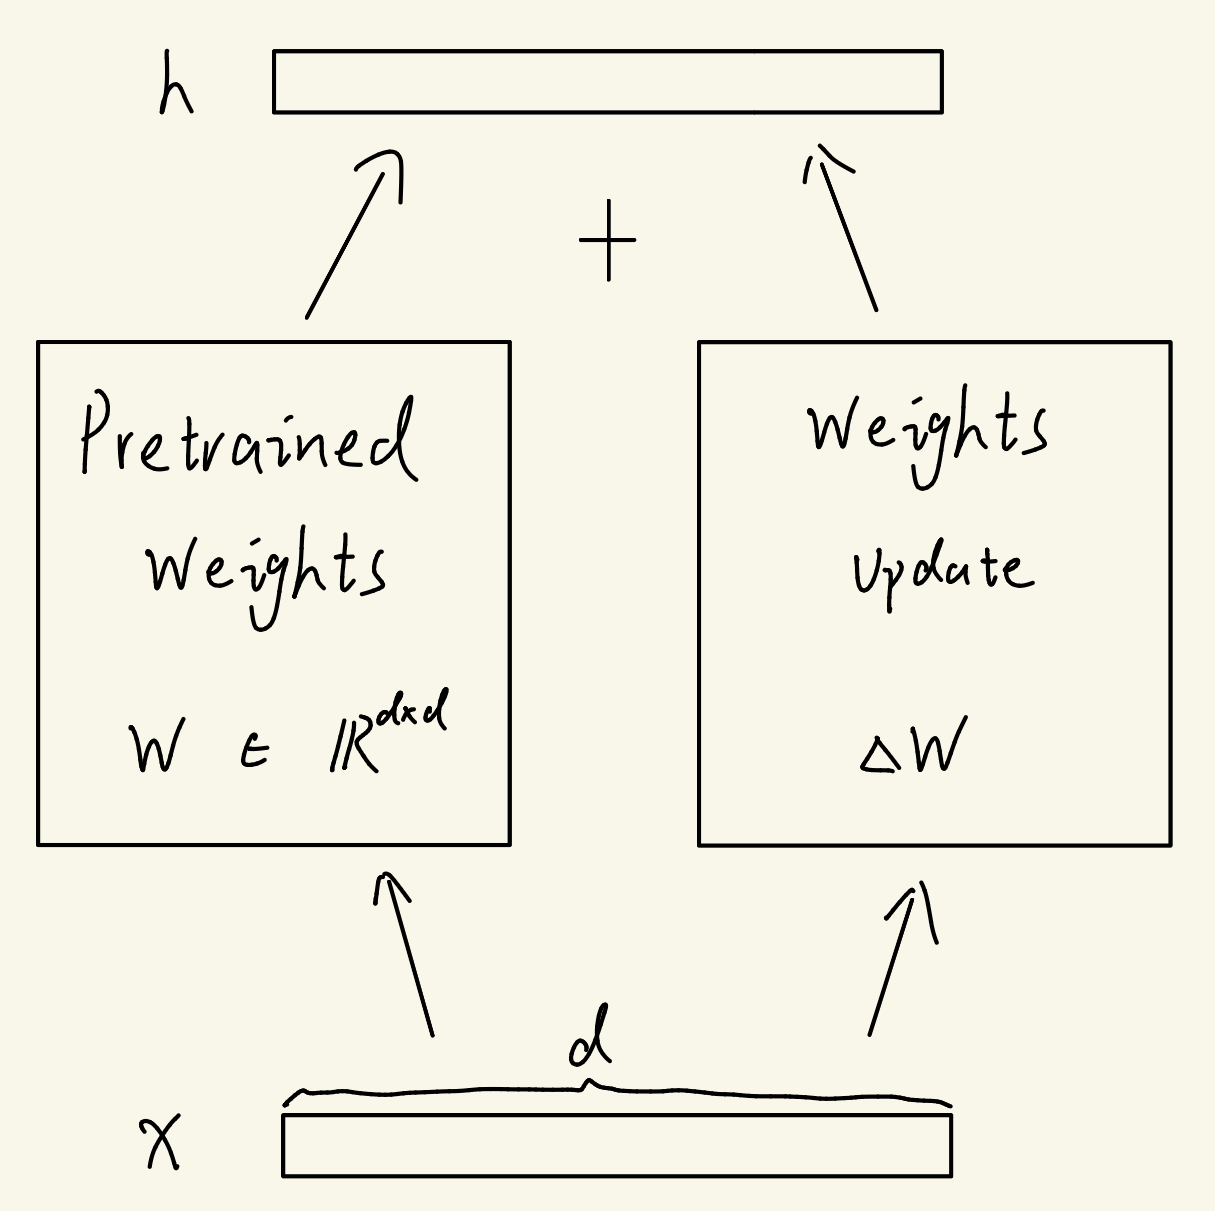 h
+
Pretrained
Weights
W ∈ ℝ^{d×d}
Weights
Update
ΔW
d
x